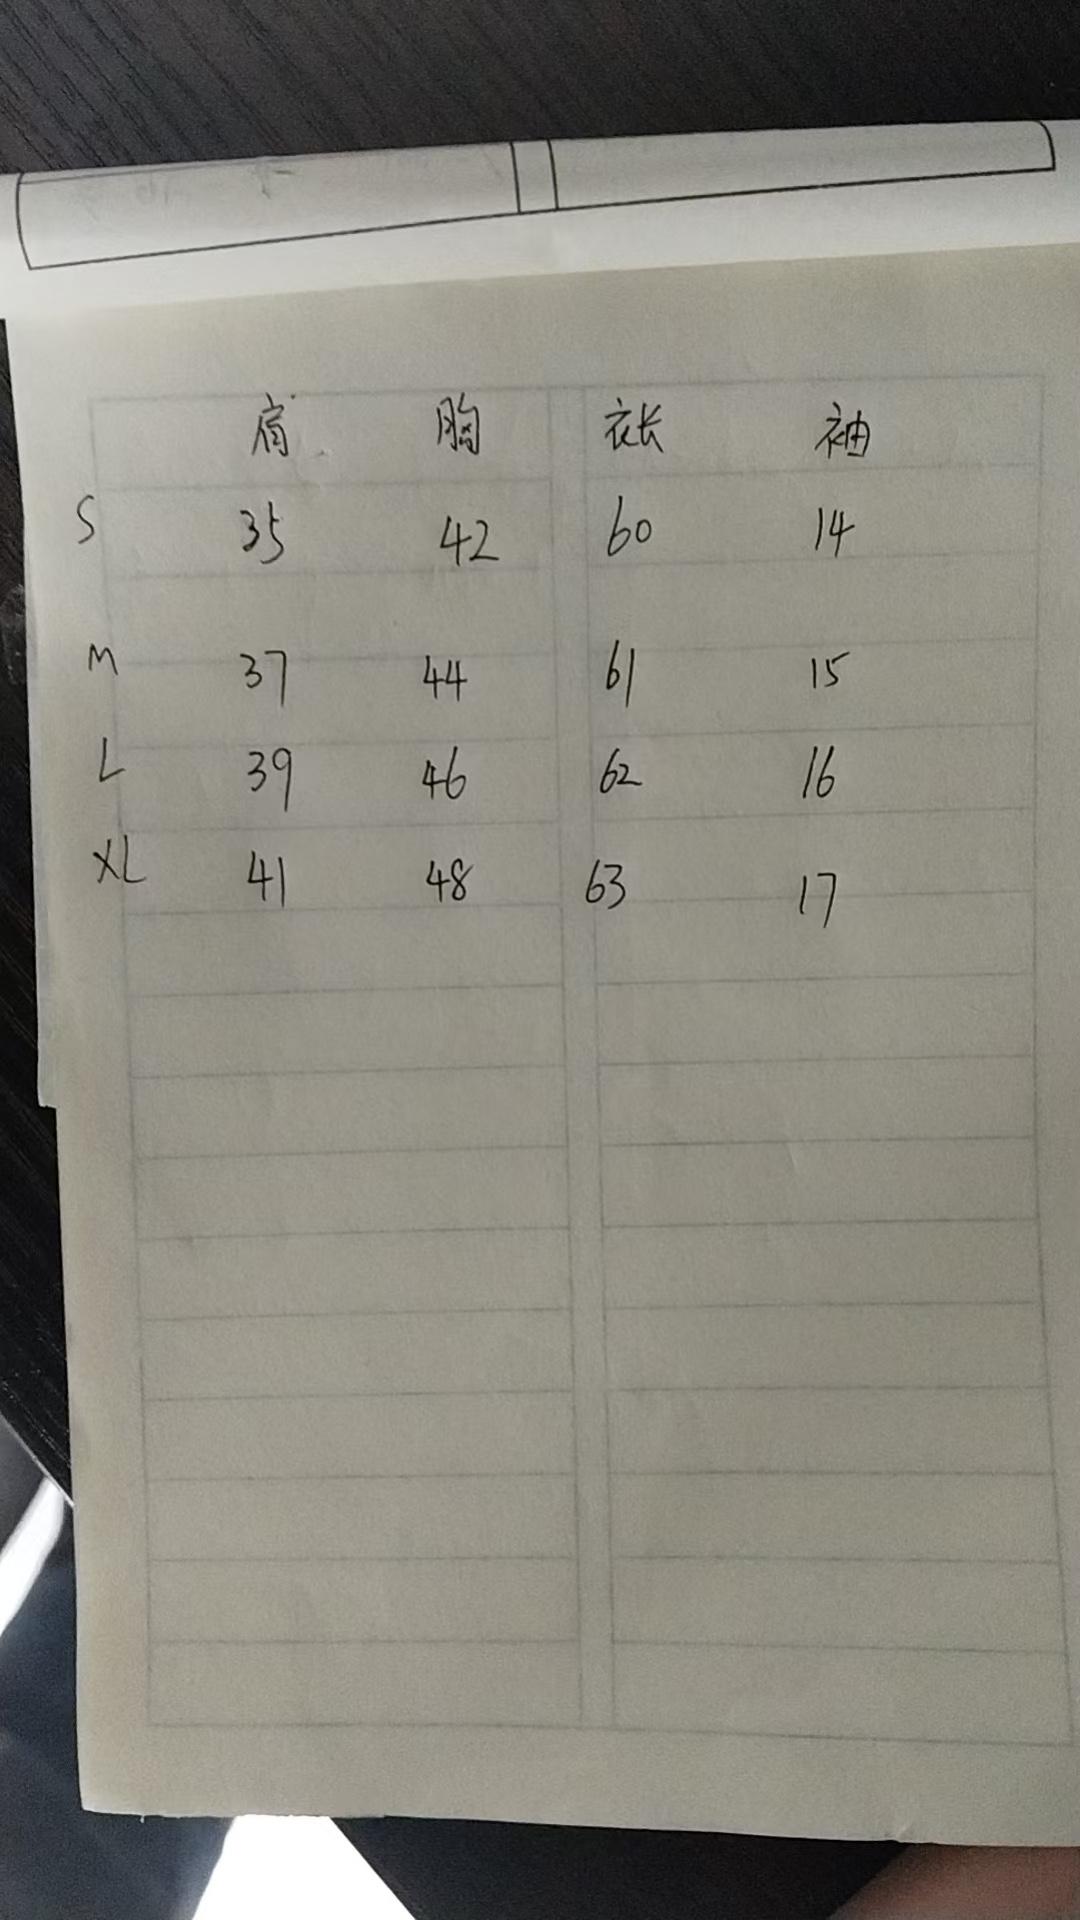 肩 胸 衣长 袖
S 35 42 60 14
M 37 44 61 15
L 39 46 62 16
XL 41 48 63 17